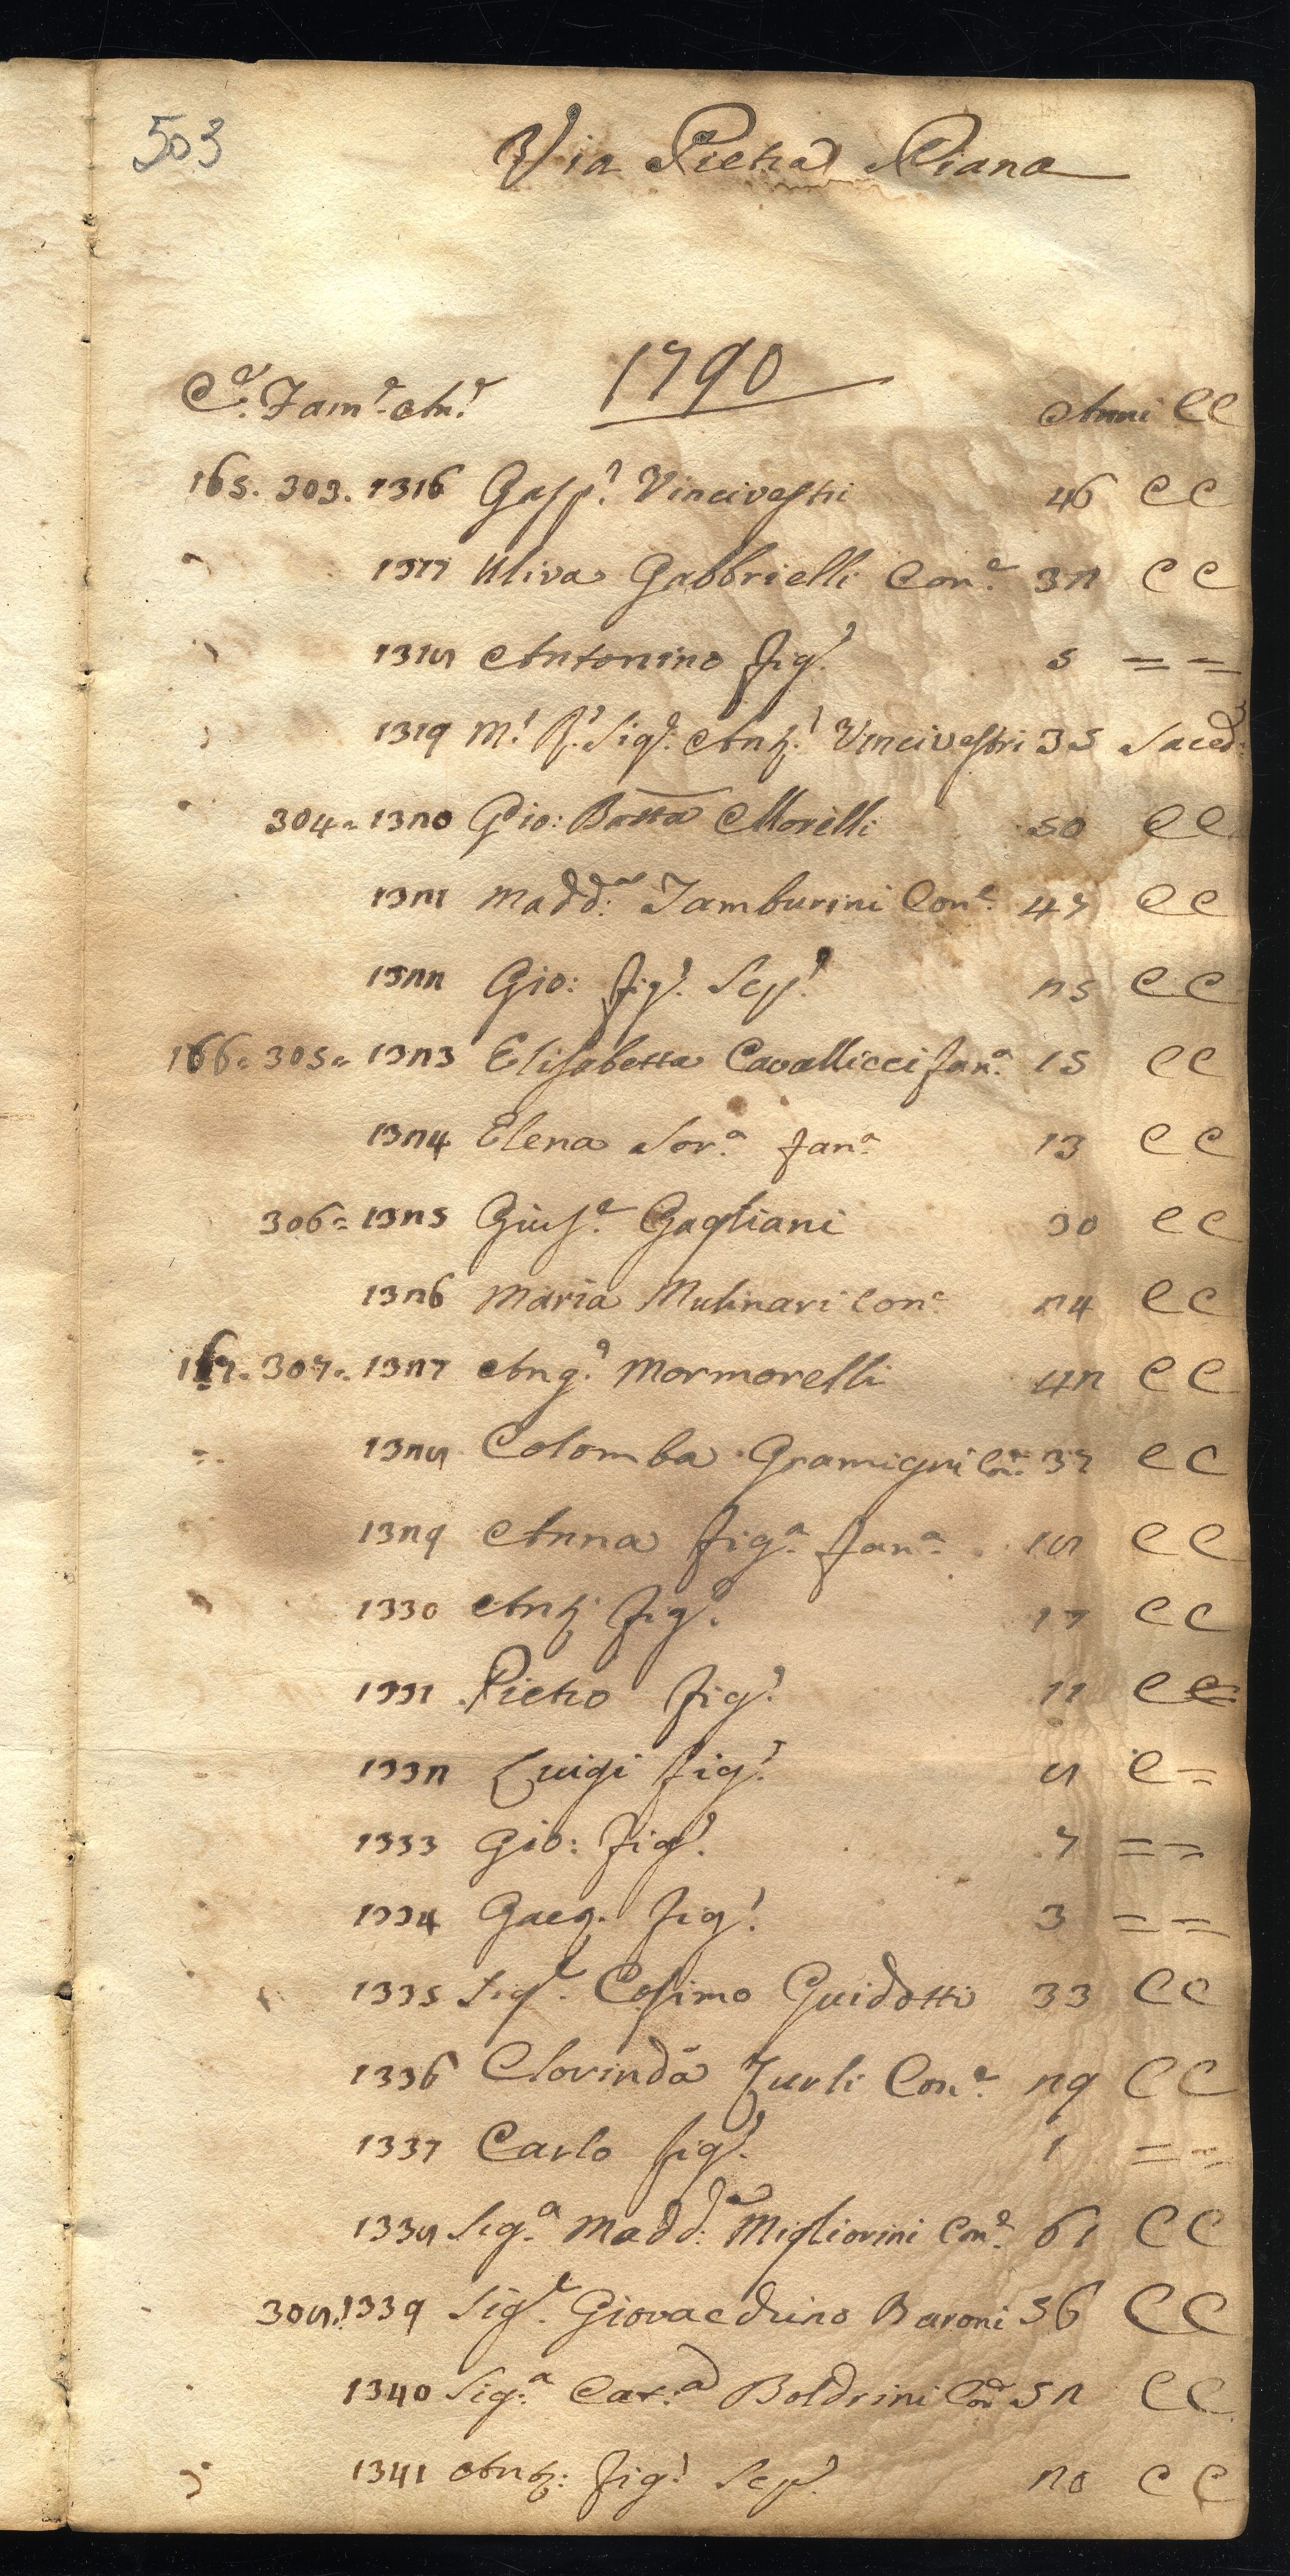 503
Via Pietra Piana
1790
C.e Fam.e An.e Anni CC
165. 303. 1316 Gasp.e Vincivestri 46 CC
" 1317 Uliva Gabbrielli Con.e 32 CC
" 1318 Antonino fig.o 5 = =
" 1319 M.o R.o Sig.e Ant.o Vincivestri 35 Sacerd.
" 304 = 1320 Gio: Batta Morelli 50 CC
1321 Madd.a Tamburini Con.e 47 CC
1322 Gio: fig.o Sep.o 25 CC
166 = 305 = 1323 Elisabetta Cavallicci fan.a 15 CC
1324 Elena Sor.a fan.a 13 CC
306 = 1325 Gius.e Gagliani 30 CC
1326 Maria Mulinari Con.e 24 CC
167. 307 = 1327 Ang.o Mormorelli 42 CC
" 1328 Colomba Gramigni Con.e 37 CC
1329 Anna fig.a fan.a 18 CC
" 1330 Ant.o fig.o 17 CC
1331 Pietro fig.o 11 CC
1332 Luigi fig.o 8 C =
1333 Gio: fig.o 7 = =
1334 Gaeg. fig.o 3 = =
1335 Sig.e Cosimo Guidotti 33 CC
1336 Clorinda Zurli Con.e 29 CC
1337 Carlo fig.o 1 = =
1338 Sig.a Madd.a Migliorini Con.e 61 CC
308. 1339 Sig.e Giovacchino Baroni 56 CC
1340 Sig.a Cat.a Boldrini Con.e 52 CC
" 1341 Ant.o: fig.o Sep.o 20 CC